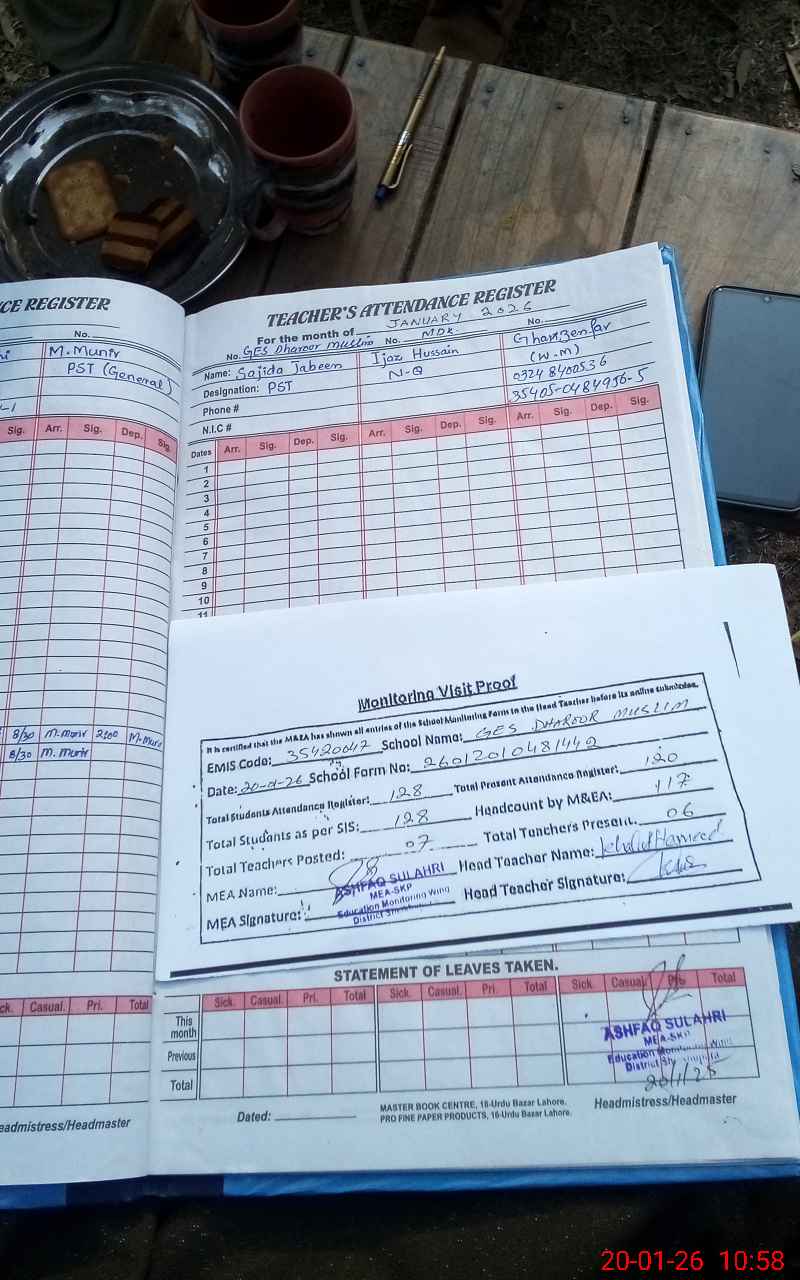 CE REGISTER
No.
M. Munir
PST (General)
Sig. Arr. Sig. Dep. Sig.
8/30 M. munir 2:00 M. Munir
8/30 M. Munir
ck. Casual. Pri. Total
eadmistress/Headmaster
TEACHER'S ATTENDANCE REGISTER
For the month of JANUARY 2026
No. GES Dharoor Muslim No. MDK. No.
Name: Sajida Jabeen Ijaz Hussain Ghanzenfar
Designation: PST N-Q (W.M)
Phone # 0324 8400536
N.I.C # 35405-0484956-5
Dates Arr. Sig. Dep. Sig. Arr. Sig. Dep. Sig. Arr. Sig. Dep. Sig.
1
2
3
4
5
6
7
8
9
10
11
Monitoring Visit Proof
It is certified that the M&EA has shown all entries of the School Monitoring Form to the Head Teacher before its online submission.
EMIS Code: 35420047 School Name: GES DHAROOR MUSLIM
Date: 20-01-26 School Form No: 26012010481442
Total Students Attendance Register: 128 Total Present Attendance Register: 120
Total Students as per SIS: 128 Headcount by M&EA: 117
Total Teachers Posted: 07 Total Teachers Present: 06
MEA Name: Head Teacher Name: Khalid Hameed
MEA Signature: Head Teacher Signature:
ASHFAQ SULAHRI
MEA-SKP
Education Monitoring Wing
District
STATEMENT OF LEAVES TAKEN.
Sick. Casual. Pri. Total Sick. Casual. Pri. Total Sick Casual. Pri. Total
This month
Previous
Total
ASHFAQ SULAHRI
MEA-SKP
Education Monitoring Wing
District
Dated:
MASTER BOOK CENTRE, 18-Urdu Bazar Lahore.
PRO FINE PAPER PRODUCTS, 16-Urdu Bazar Lahore.
Headmistress/Headmaster
20-01-26 10:58